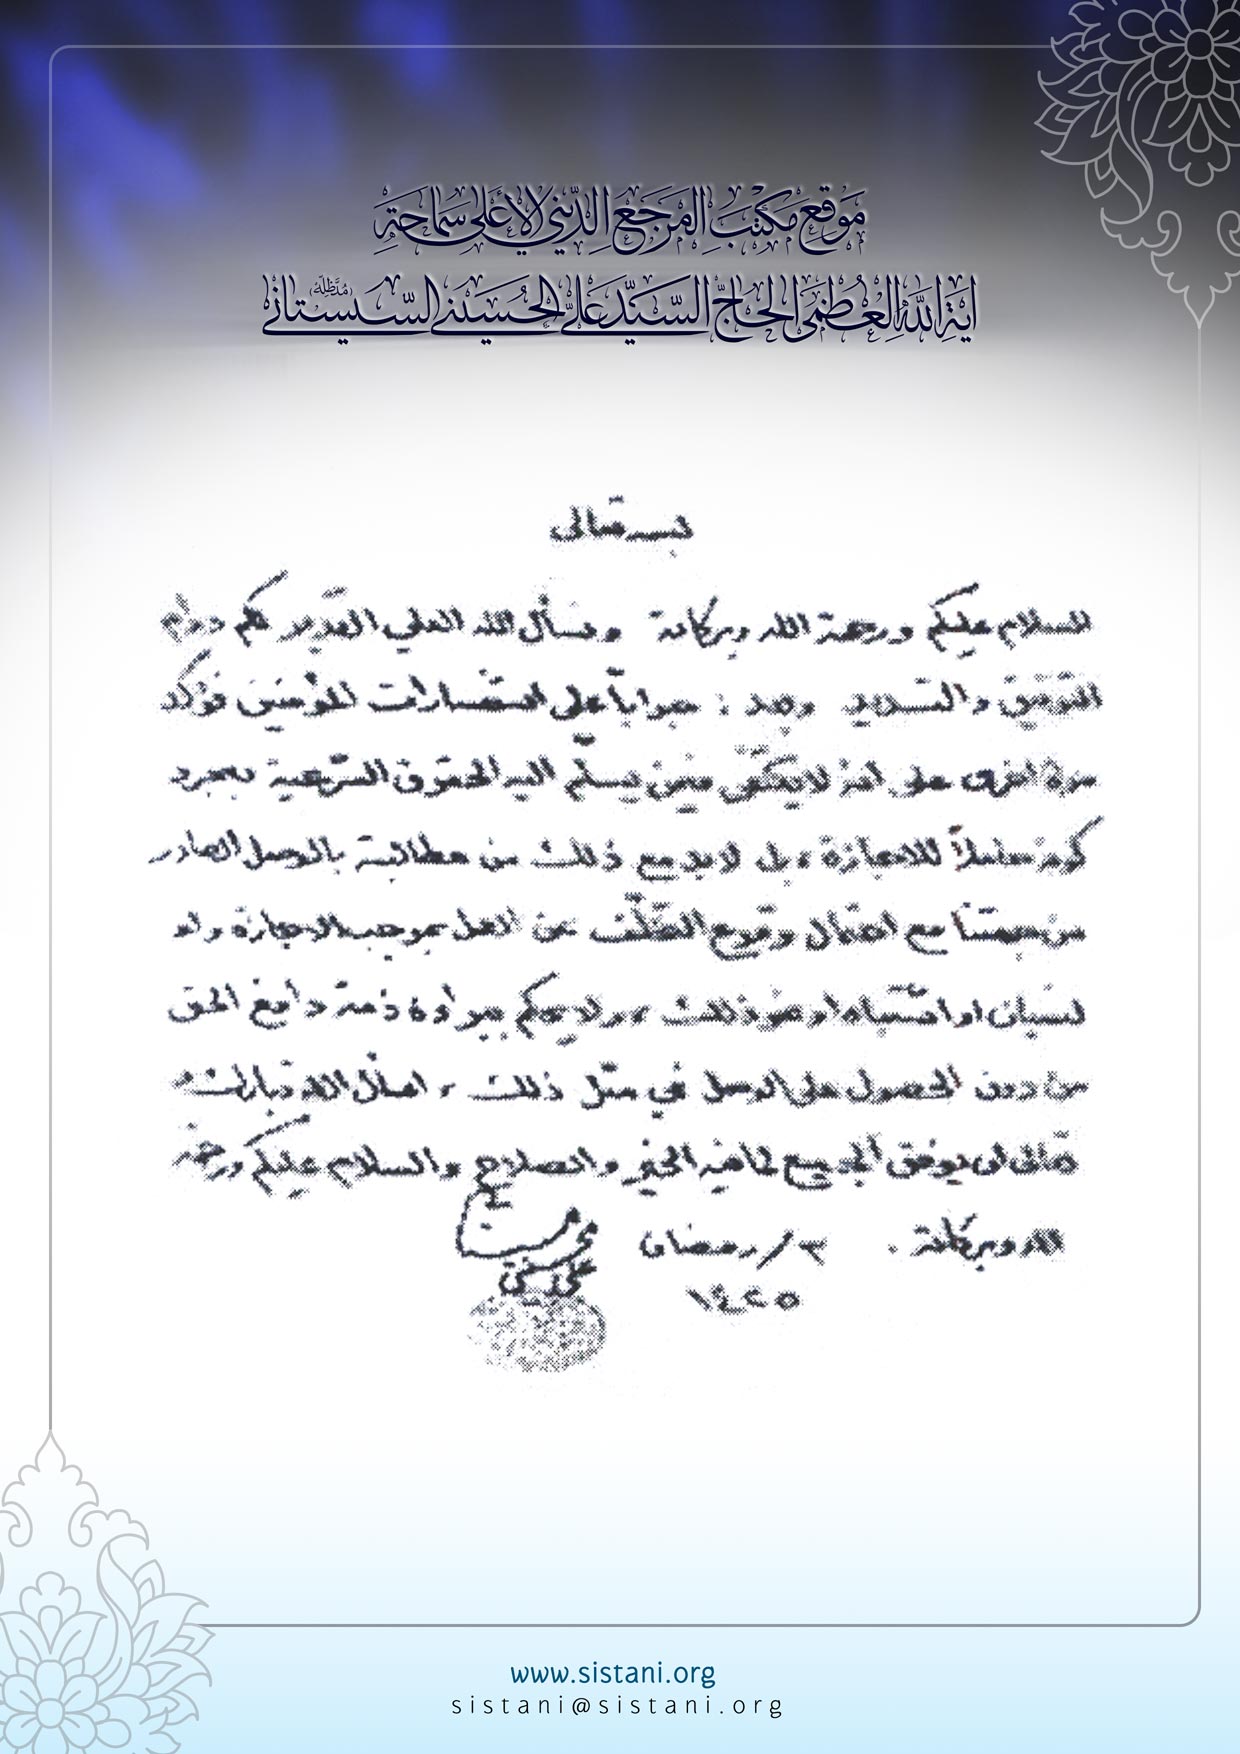 موقع مكتب المرجع الديني الأعلى سماحة
آية الله العظمى الحاج السيد علي الحسيني السيستاني (مد ظله)
بسمه تعالى
السلام عليكم ورحمة الله وبركاته ونسأل الله العلي القدير لكم دوام
التوفيق والتسديد وبعد : جواباً على استفسارات المؤمنين نؤكد
مرة اخرى على انه لا يكتفى فيمن يسلّم اليه الحقوق الشرعية بمجرد
كونه حاملاً للاجازة ، بل لابد مع ذلك من مطالبته بالوصل الصادر
من جهتنا مع احتمال وقوع التخلّف عن العمل بموجب الاجازة ولو
لنسيان او اشتباه او نحو ذلك ، ولا يحكم ببراءة ذمة دافع الحق
من دون الحصول على الوصل في مثل ذلك ، اسأل الله تبارك و
تعالى ان يوفق الجميع لما فيه الخير والصلاح والسلام عليكم ورحمة
الله وبركاته . ٣/رمضان
١٤٢٥
www.sistani.org
sistani@sistani.org